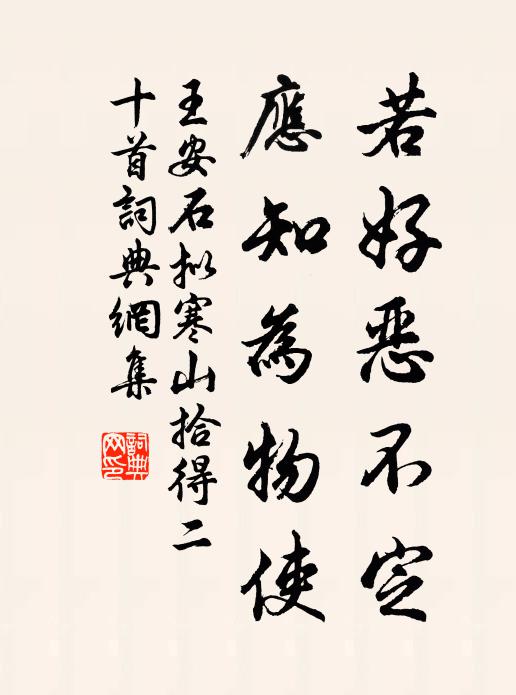 若好惡不定
應知為物使
王安石拟寒山拾得二
十首詞典網集
詞典
网印